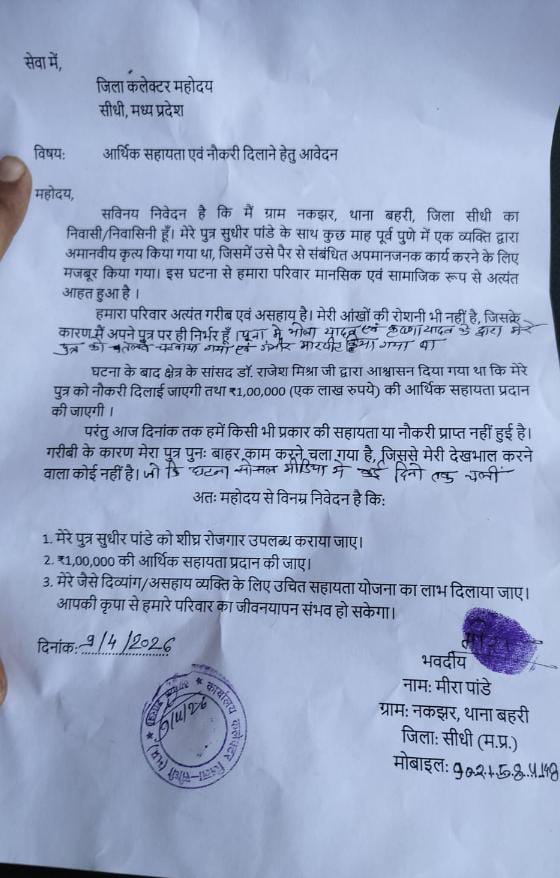 सेवा में,
जिला कलेक्टर महोदय
सीधी, मध्य प्रदेश
विषय: आर्थिक सहायता एवं नौकरी दिलाने हेतु आवेदन
महोदय,
सविनय निवेदन है कि मैं ग्राम नकझर, थाना बहरी, जिला सीधी का
निवासी/निवासिनी हूँ। मेरे पुत्र सुधीर पांडे के साथ कुछ माह पूर्व पुणे में एक व्यक्ति द्वारा
अमानवीय कृत्य किया गया था, जिसमें उसे पैर से संबंधित अपमानजनक कार्य करने के लिए
मजबूर किया गया। इस घटना से हमारा परिवार मानसिक एवं सामाजिक रूप से अत्यंत
आहत हुआ है ।
हमारा परिवार अत्यंत गरीब एवं असहाय है। मेरी आंखों की रोशनी भी नहीं है, जिसके
कारण मैं अपने पुत्र पर ही निर्भर हूँ। पूना में यादव एवं यादव के द्वारा मेरे
पुत्र को गया एवं गंभीर मारपीट किया गया था
घटना के बाद क्षेत्र के सांसद डॉ. राजेश मिश्रा जी द्वारा आश्वासन दिया गया था कि मेरे
पुत्र को नौकरी दिलाई जाएगी तथा ₹1,00,000 (एक लाख रुपये) की आर्थिक सहायता प्रदान
की जाएगी ।
परंतु आज दिनांक तक हमें किसी भी प्रकार की सहायता या नौकरी प्राप्त नहीं हुई है।
गरीबी के कारण मेरा पुत्र पुनः बाहर काम करने चला गया है, जिससे मेरी देखभाल करने
वाला कोई नहीं है। जो कि घटना सोसल मीडिया में कई दिनो तक चली
अतः महोदय से विनम्र निवेदन है कि:
1. मेरे पुत्र सुधीर पांडे को शीघ्र रोजगार उपलब्ध कराया जाए।
2. ₹1,00,000 की आर्थिक सहायता प्रदान की जाए।
3. मेरे जैसे दिव्यांग/असहाय व्यक्ति के लिए उचित सहायता योजना का लाभ दिलाया जाए।
आपकी कृपा से हमारे परिवार का जीवनयापन संभव हो सकेगा।
दिनांक: 9/4/2026
भवदीय
नाम: मीरा पांडे
ग्राम: नकझर, थाना बहरी
जिला: सीधी (म.प्र.)
मोबाइल:
कार्यालय कलेक्टर जिला-सीधी (म.प्र.)